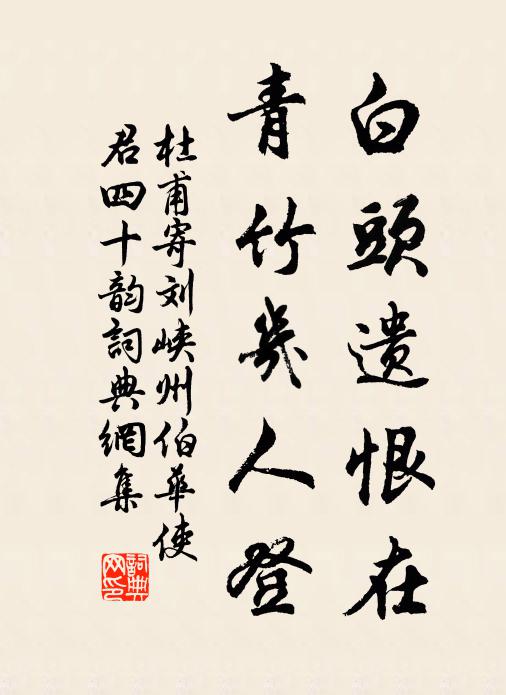 白頭遺恨在
青竹幾人登
杜甫寄刘峡州伯華使
君四十韵詞典網集
詞典
网印